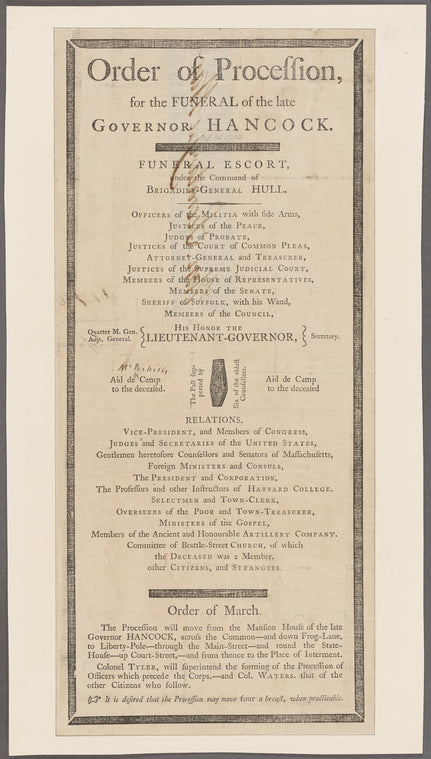 Order of Proceſſion,
for the FUNERAL of the late
GOVERNOR HANCOCK.
FUNERAL ESCORT,
under the Command of
BRIGADIER-GENERAL HULL.
OFFICERS of the MILITIA with ſide Arms,
JUSTICES of the PEACE,
JUDGES of PROBATE,
JUSTICES of the COURT of COMMON PLEAS,
ATTORNEY-GENERAL and TREASURER,
JUSTICES of the SUPREME JUDICIAL COURT,
MEMBERS of the HOUSE of REPRESENTATIVES,
MEMBERS of the SENATE,
SHERIFF of SUFFOLK, with his Wand,
MEMBERS of the COUNCIL,
Quarter M. Gen.
Adjt. General.
HIS HONOR THE
LIEUTENANT-GOVERNOR,
Secretary.
Mr
Aid de Camp
to the deceaſed.
The Pall ſup-
ported by
Six of the eldeſt
Counſellors.
Aid de Camp
to the deceaſed
RELATIONS.
VICE-PRESIDENT, and MEMBERS of CONGRESS,
JUDGES and SECRETARIES of the UNITED STATES,
Gentlemen heretofore Counſellors and Senators of Maſſachuſetts,
Foreign MINISTERS and CONSULS,
The PRESIDENT and CORPORATION,
The Profeſſors and other Inſtructors of HARVARD COLLEGE.
SELECTMEN and TOWN-CLERK,
OVERSEERS of the POOR and TOWN-TREASURER,
MINISTERS of the GOSPEL,
Members of the Ancient and Honourable ARTILLERY COMPANY.
Committee of Brattle-Street CHURCH, of which
the DECEASED was a Member.
other CITIZENS, and STRANGERS.
Order of March.
The Proceſſion will move from the Manſion Houſe of the late
Governor HANCOCK, acroſs the Common—and down Frog-Lane,
to Liberty-Pole—through the Main-Street—and round the State-
Houſe—up Court-Street,—and from thence to the Place of Interment.
Colonel TYLER, will ſuperintend the forming of the Proceſſion of
Officers which precede the Corps.—and Col. WATERS. that of the
other Citizens who follow.
☞ It is deſired that the Proceſſion may move four a breaſt, when practicable.